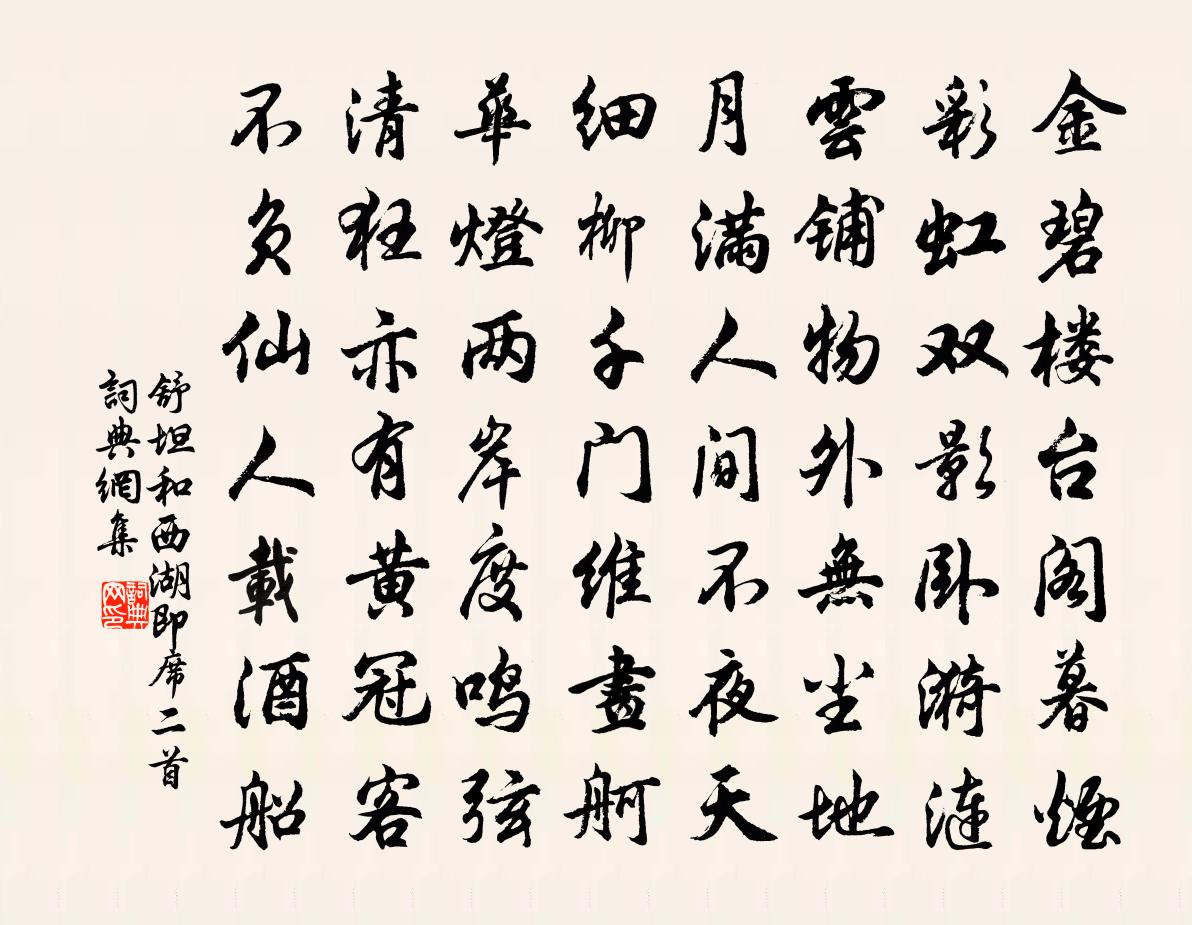 金碧楼台阁暮煙
彩虹双影卧漪涟
雲铺物外無尘地
月满人间不夜天
细柳千门维畫舸
華燈两岸度鸣弦
清狂亦有黄冠客
不负仙人載酒船
舒坦和西湖即席二首
詞典網集
詞典网印